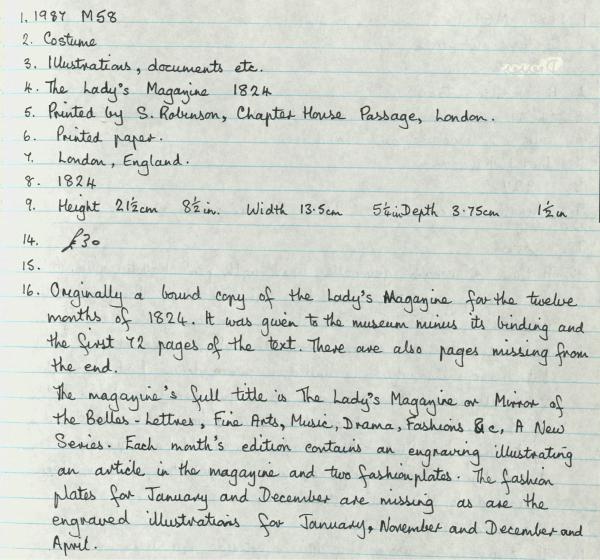 1. 1987 M58
2. Costume
3. Illustrations, documents etc.
4. The Lady's Magazine 1824
5. Printed by S. Robinson, Chapter House Passage, London.
6. Printed paper.
7. London, England.
8. 1824
9. Height 21½cm 8½in. Width 13.5cm 5¼in Depth 3.75cm 1½in
14. £30
15.
16. Originally a bound copy of the Lady's Magazine for the twelve
months of 1824. It was given to the museum minus its binding and
the first 72 pages of the text. There are also pages missing from
the end.
The magazine's full title is The Lady's Magazine or Mirror of
the Belles-Lettres, Fine Arts, Music, Drama, Fashions &c, A New
Series. Each month's edition contains an engraving illustrating
an article in the magazine and two fashionplates. The fashion
plates for January and December are missing as are the
engraved illustrations for January, November and December and
April.